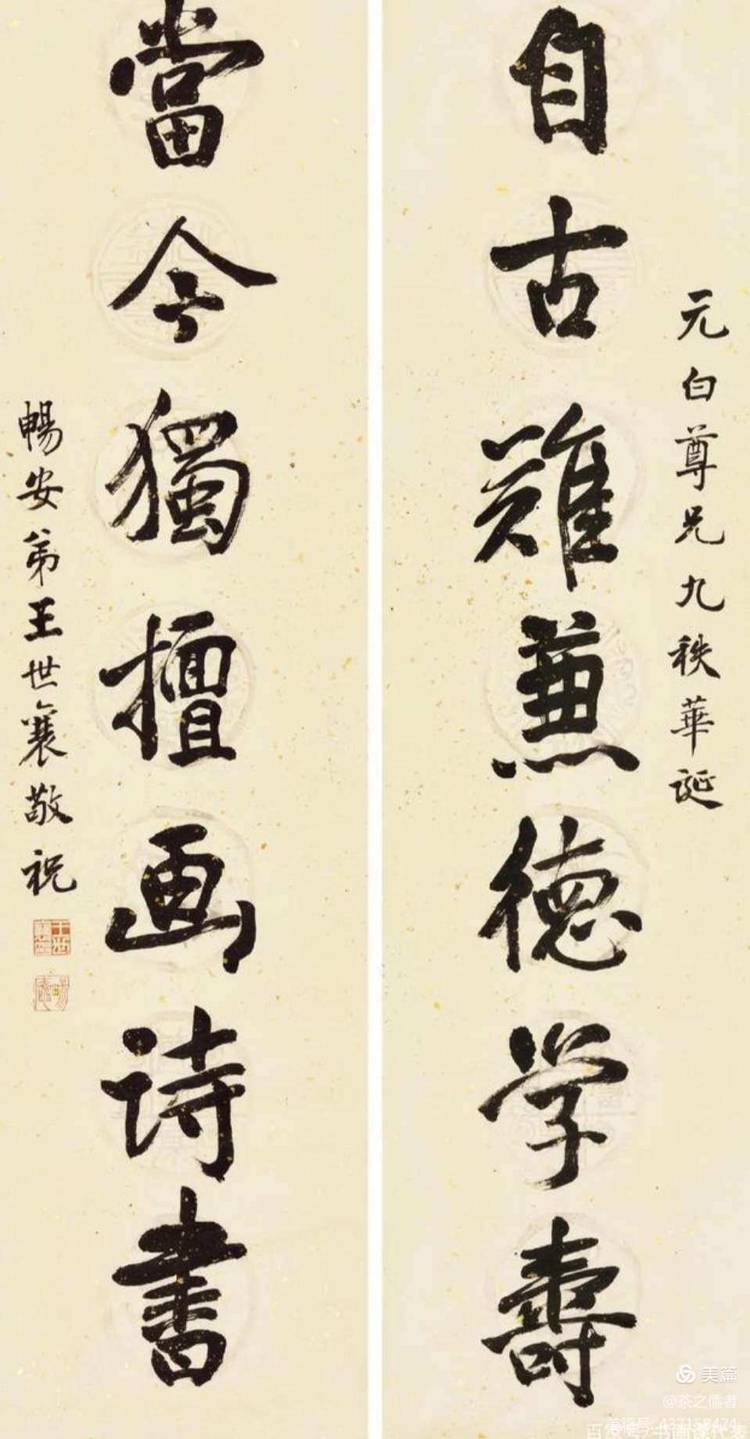 元白尊兄九秩華誕
自古難兼德学壽
當今獨擅画诗書
暢安弟王世襄敬祝
美篇
@茶之儒者